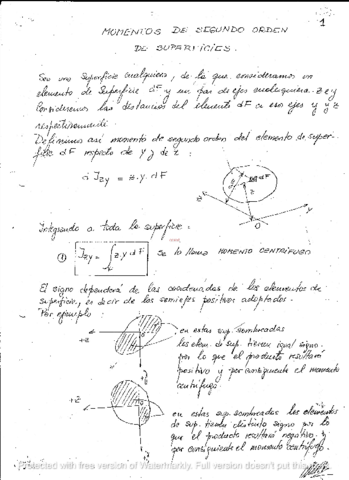 1
MOMENTOS DE SEGUNDO ORDEN
DE SUPERFICIES.
Sea una superficie cualquiera, de la que consideramos un
elemento de superficie dF y un par de ejes cualesquiera z e y
Consideremos las distancias del elemento dF a esos ejes y y z
respectivamente.
Definimos así momento de segundo orden del elemento de super-
ficie dF respecto de y y de z :
d Jzy = z.y.dF
dF
z
y
O
Integrando a toda la superficie:
① Jzy = ∫ z.y dF se lo llama MOMENTO CENTRÍFUGO
F
El signo dependerá de las coordenadas de los elementos de
superficie, es decir de los semiejes positivos adoptados.
Por ejemplo :
en estas sup. sombreadas
los elem. de sup. tienen igual signo
por lo que el producto resultará
positivo y por consiguiente el momento
centrífugo.
+z
+y
en estas sup. sombreadas los elementos
de sup. tienen distinto signo por lo
que el producto resultará negativo y
por consiguiente el momento centrífugo
+z
+y
Protected with free version of Watermarkly. Full version doesn't put this mark.